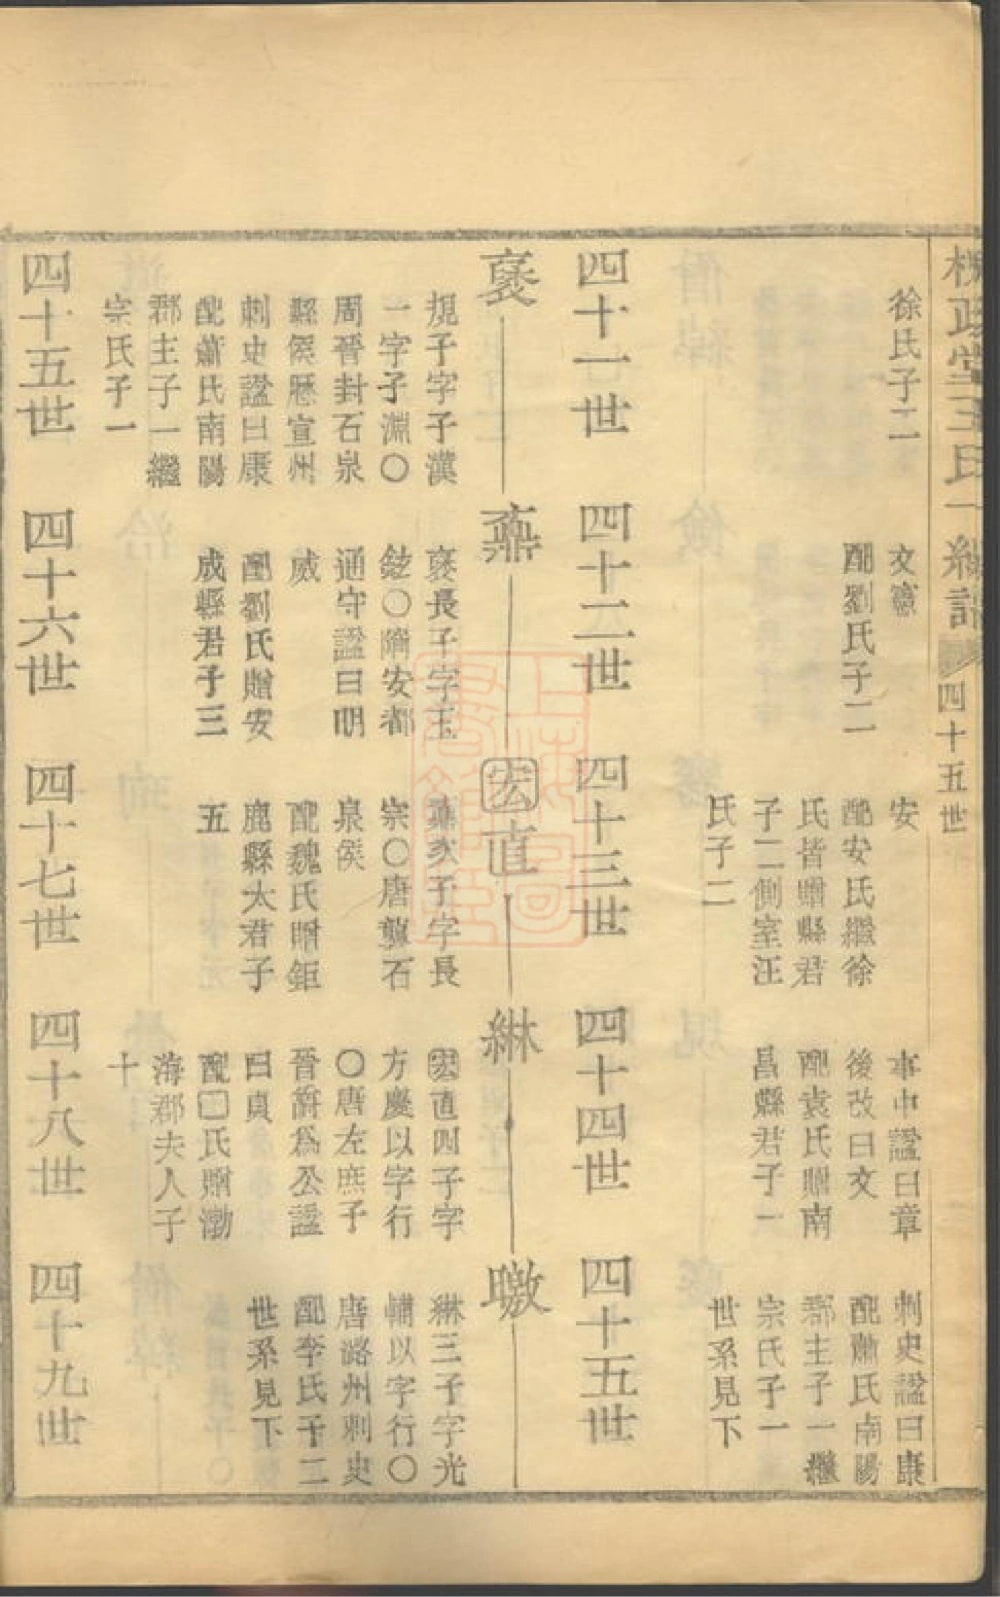 槐政堂王氏一線譜
四十五世
徐氏子二
文憲
配劉氏子二
安
配安氏繼徐
氏皆贈縣君
子二側室汪
氏子二
本中諡曰章
後改曰文
配袁氏贈南
昌縣君子一
刺史諡曰康
配蕭氏南陽
郡主子一繼
宗氏子一
世系見下
四十一世
四十二世
四十三世
四十四世
四十五世
褒
鼒
宏直
綝
曒
規子字子漢
一字子淵〇
周晉封石泉
縣侯歷宣州
刺史諡曰康
配蕭氏南陽
郡主子一繼
宗氏子一
褒長子字玉
鉉〇隋安都
通守諡曰明
威
配劉氏贈安
成縣君子三
鼒次子字長
宗〇唐襲石
泉侯
配魏氏贈鉅
鹿縣太君子
五
宏直四子字
方慶以字行
〇唐左庶子
晉爵為公諡
曰貞
配囗氏贈渤
海郡夫人子
十
綝三子字光
輔以字行〇
唐潞州刺史
配李氏子二
世系見下
四十五世
四十六世
四十七世
四十八世
四十九世